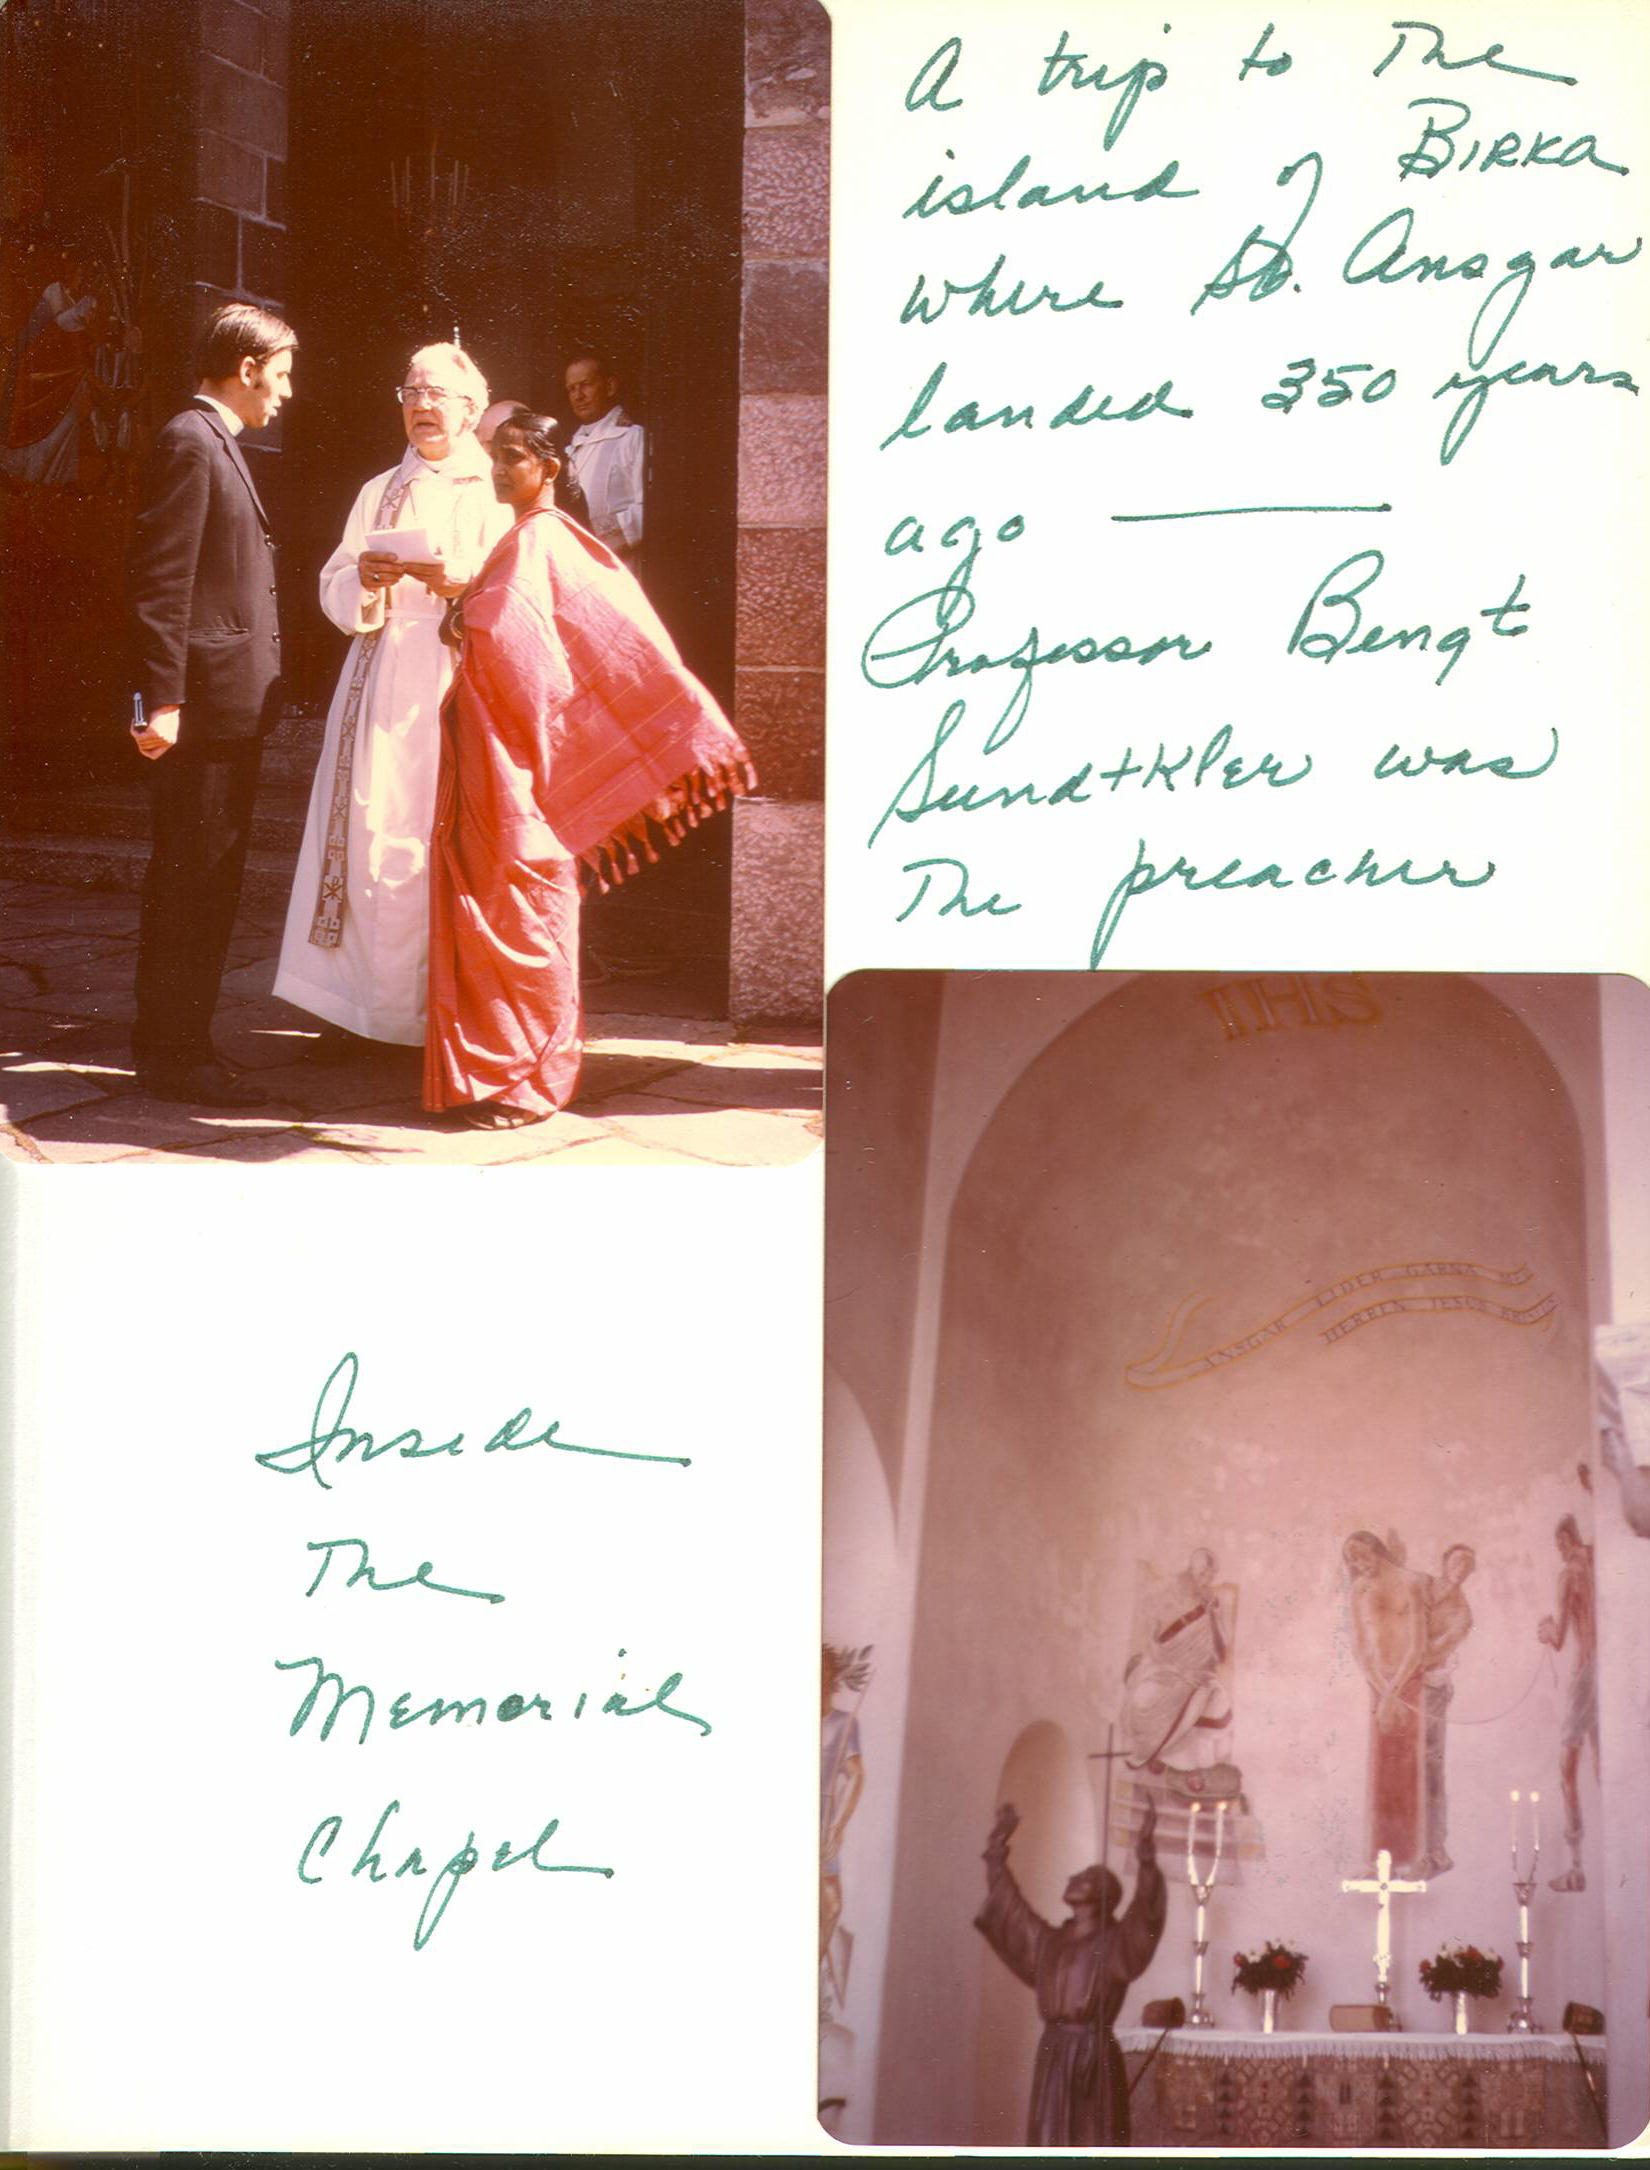 A trip to The
island of BIRKA
where St. Ansgar
landed 350 years
ago
Professor Bengt
Sundtkler was
The preacher
IHS
ANSGAR LIDER GÄRNA MED
HERREN JESUS KRISTUS
Inside
The
Memorial
Chapel